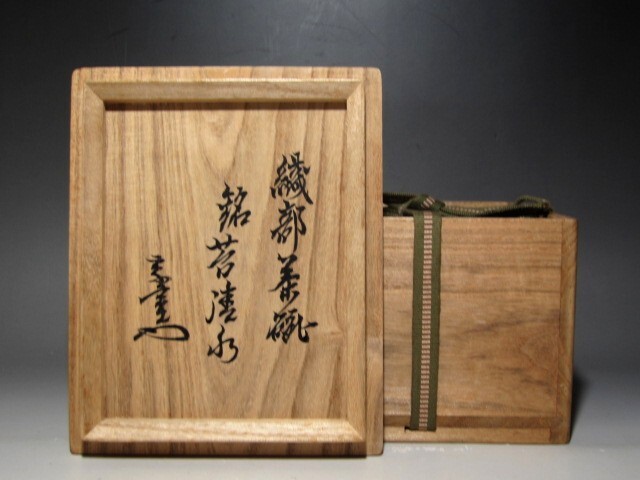 織部茶碗
銘苔清水